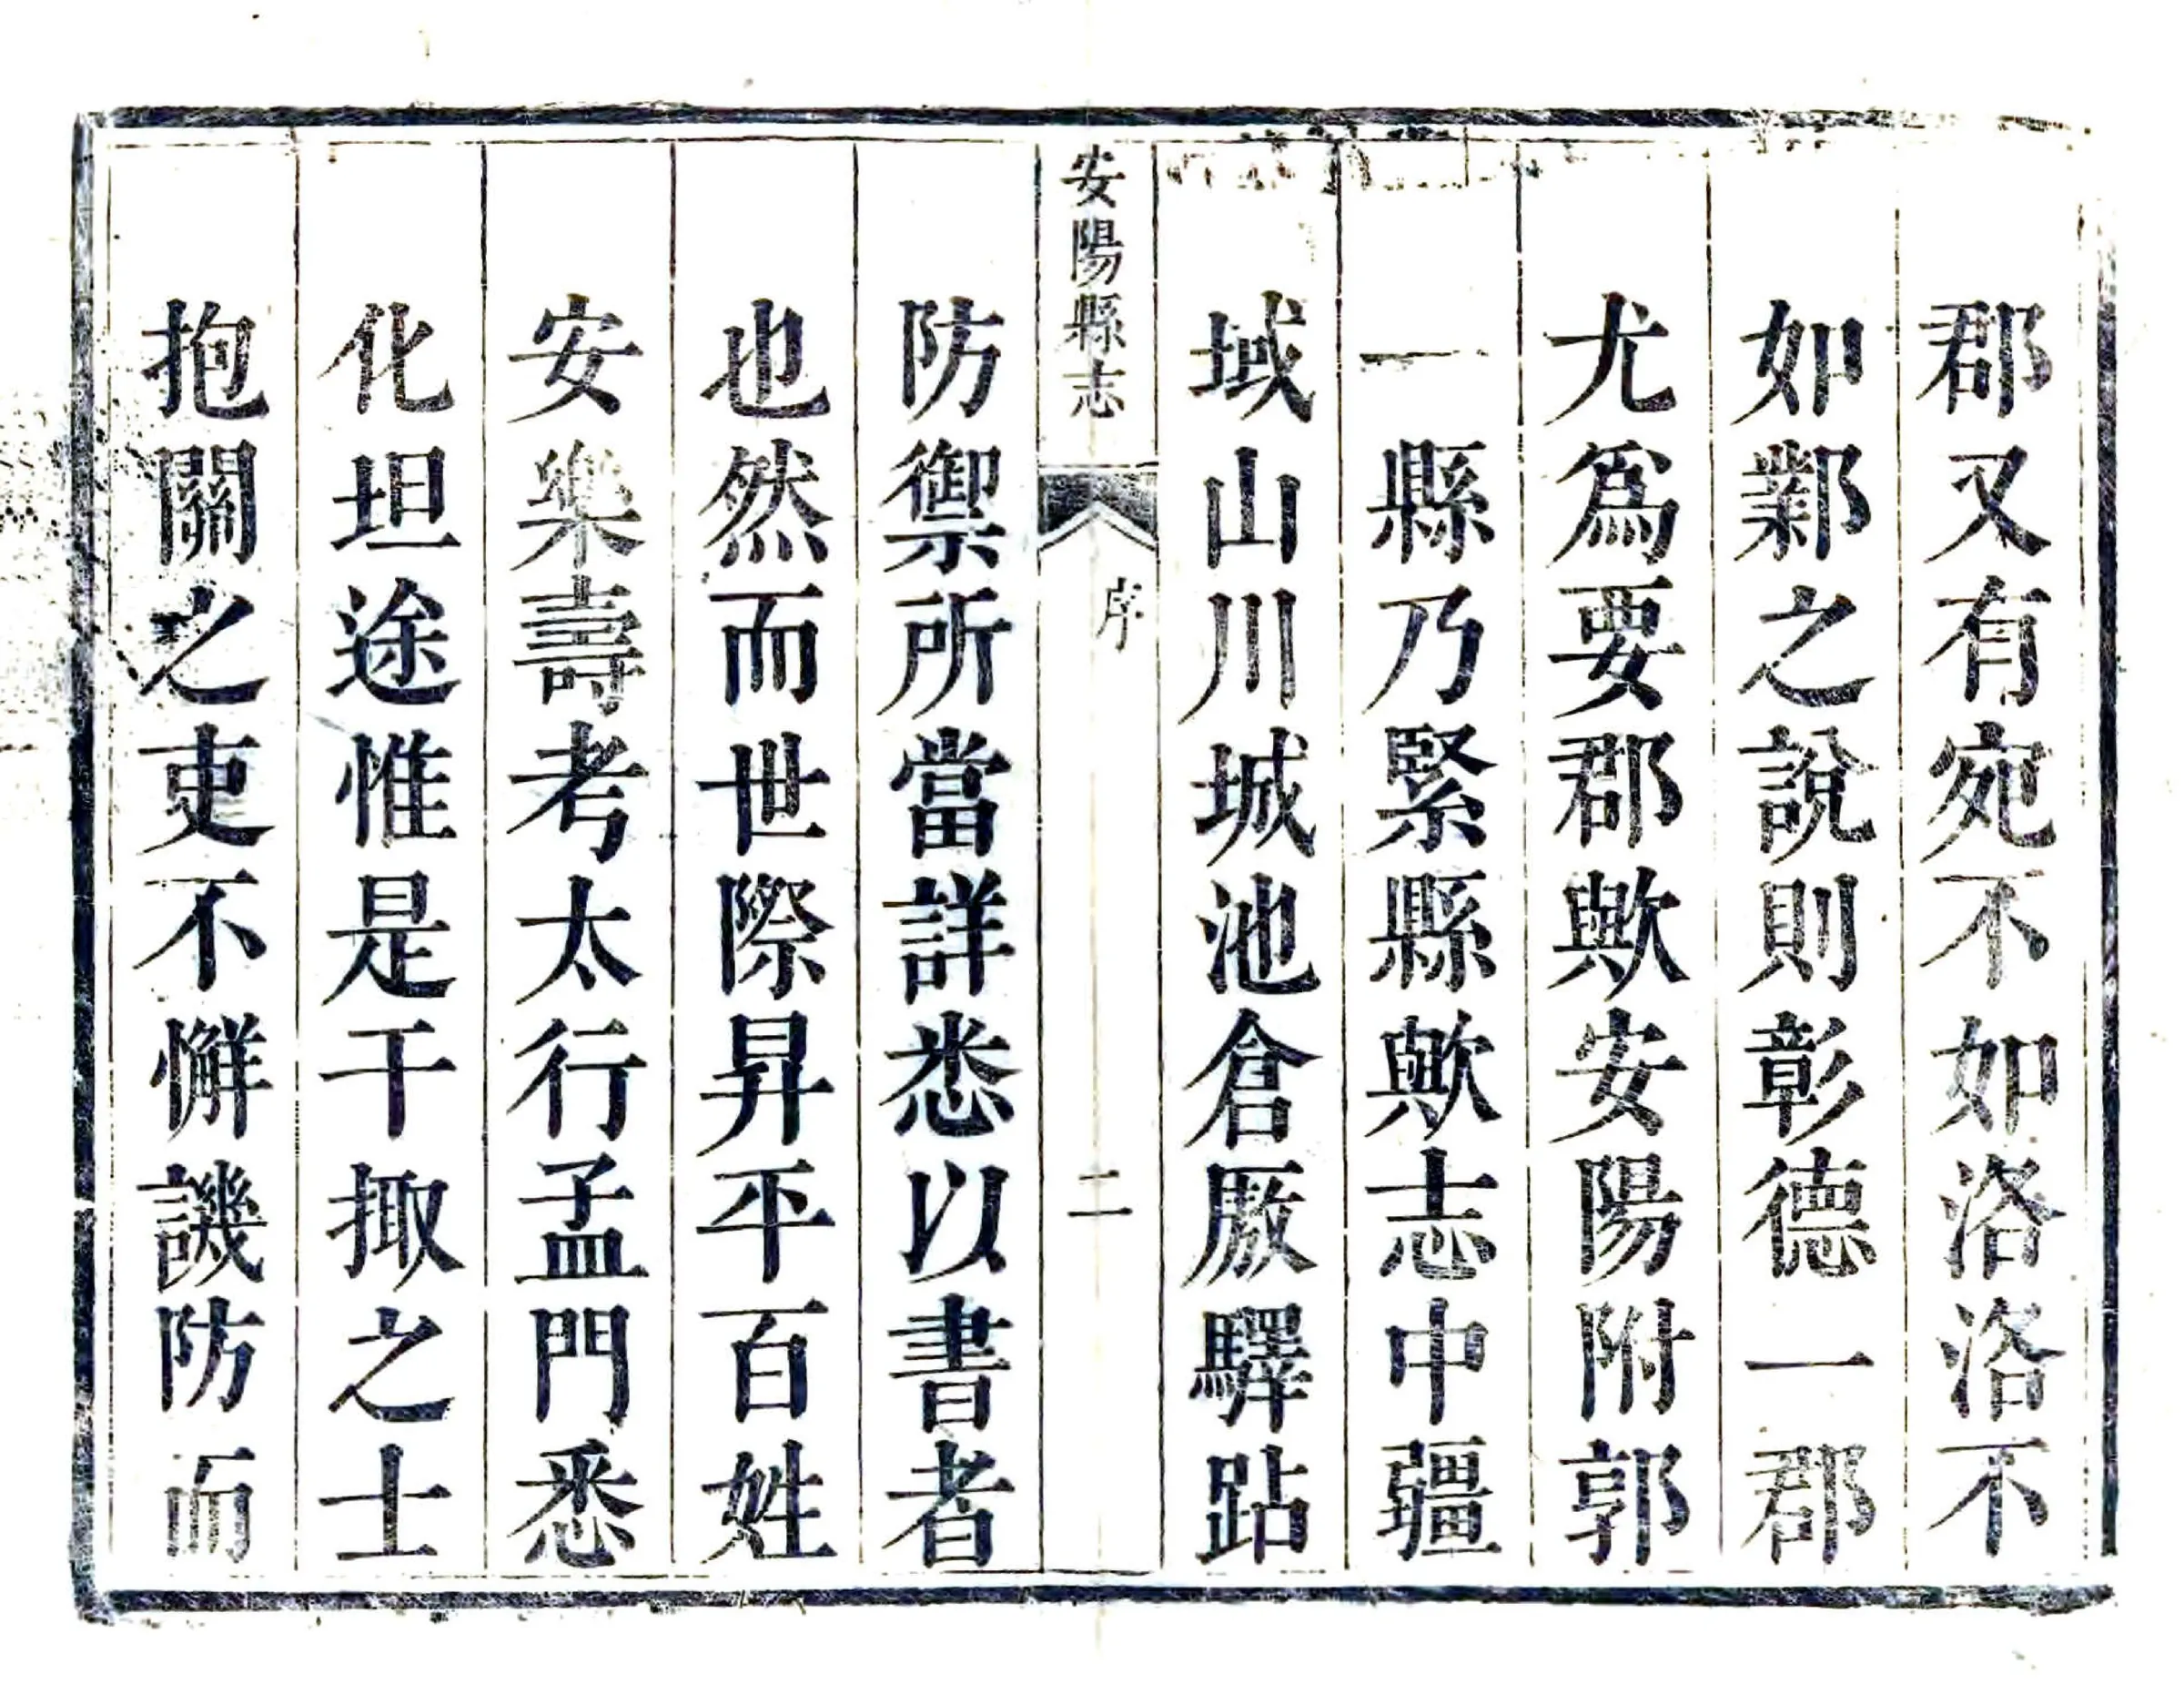 郡又有宛不如洛洛不
如鄴之說則彰德一郡
尤爲要郡歟安陽附郭
一縣乃緊縣歟志中疆
域山川城池倉厫驛跕
安陽縣志 序 二
防禦所當詳悉以書者
也然而世際昇平百姓
安樂壽考太行孟門悉
化坦途惟是干掫之士
抱關之吏不懈譏防而